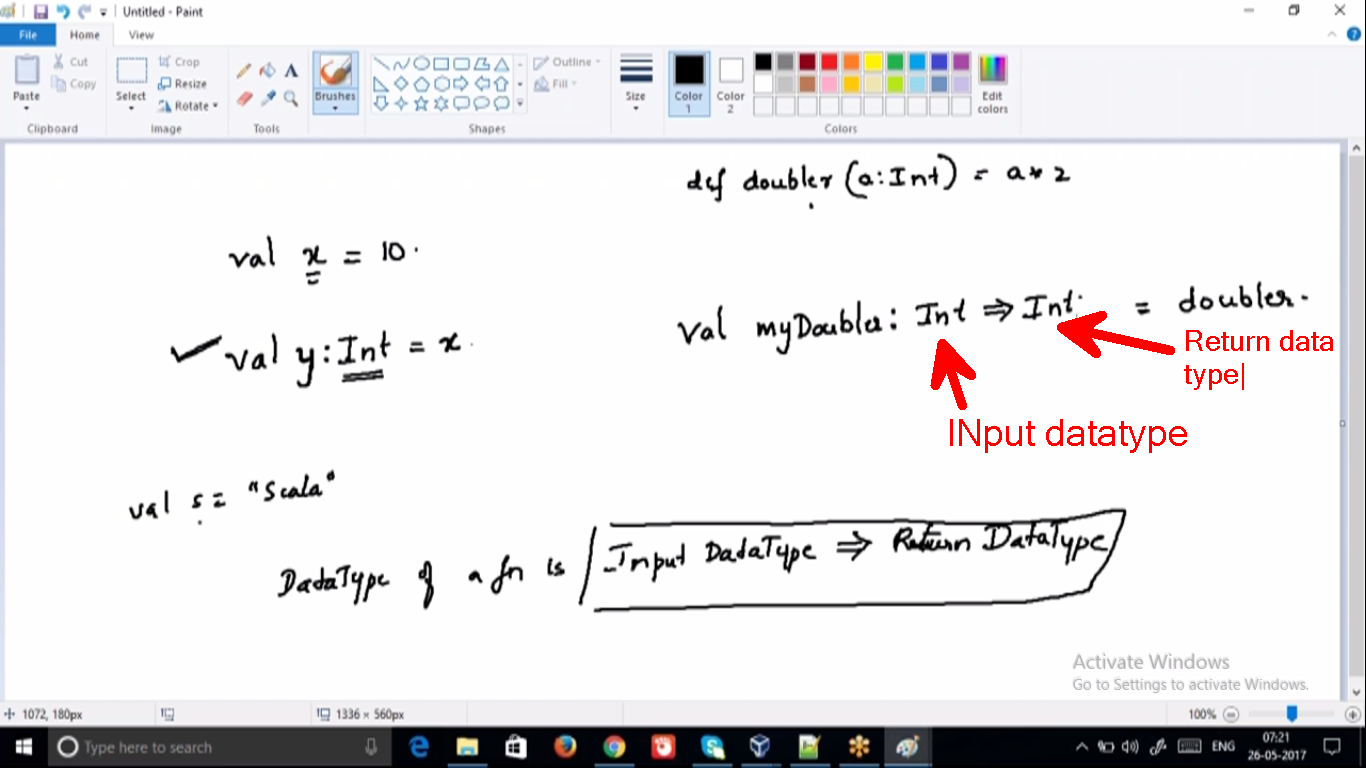 Untitled - Paint
File Home View
Paste
Cut
Copy
Clipboard
Select
Crop
Resize
Rotate
Image
A
Tools
Brushes
Outline
Fill
Shapes
Size
Color 1
Color 2
Edit colors
Colors
def doubler (a:Int) = a * 2
val x = 10.
val y : Int = x
val myDoubler : Int => Int = doubler.
Return data
type
INput datatype
val s = "Scala"
DataType of a fn is Input DataType => Return DataType
Activate Windows
Go to Settings to activate Windows.
1072, 180px
1336 × 560px
100%
Type here to search
ENG
07:21
26-05-2017